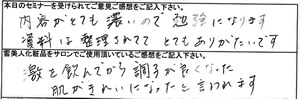 本日のセミナーを受けられてご意見ご感想をご記入下さい。
内容がとても濃いので勉強になります
資料は整理されてて とてもありがたいです
雪美人化粧品をサロンでご使用頂いているご感想をご記入下さい。
激を飲んでから調子が良くなった
肌がきれいになったと言われます